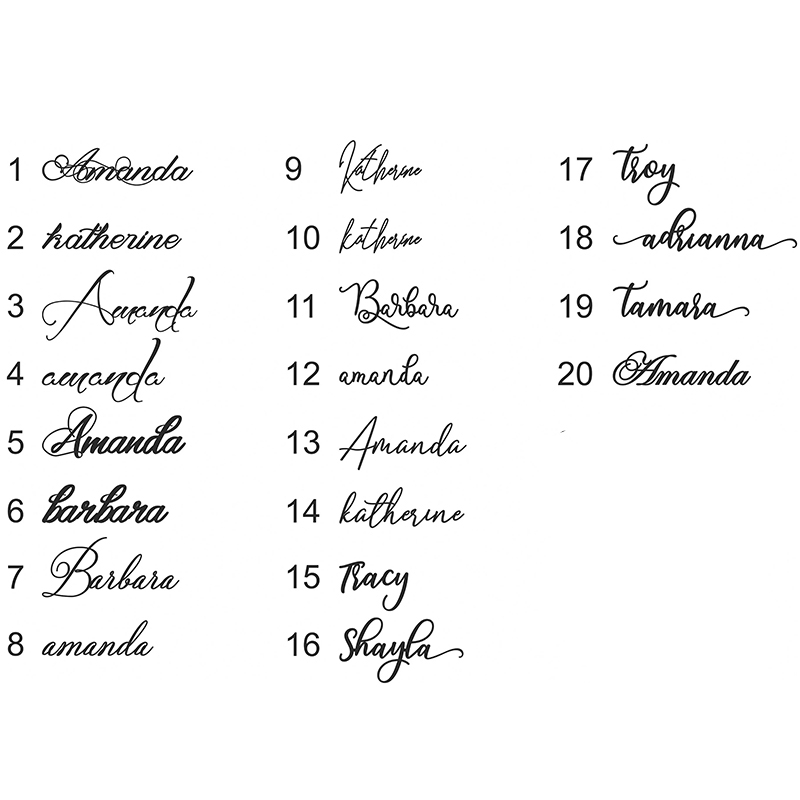 1 Amanda
2 katherine
3 Amanda
4 amanda
5 Amanda
6 barbara
7 Barbara
8 amanda
9 Katherine
10 katherine
11 Barbara
12 amanda
13 Amanda
14 katherine
15 Tracy
16 Shayla
17 troy
18 adrianna
19 tamara
20 Amanda